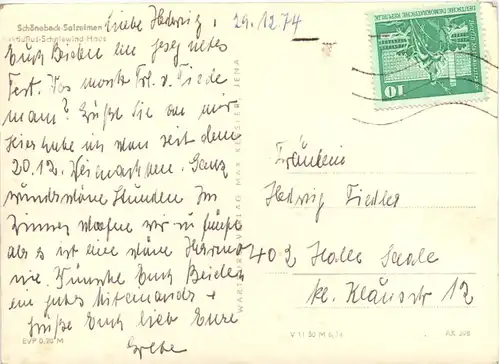 Schönebeck-Salzelmen
Liebe Hedwig, 29.12.74
Euch Beiden ein gesegnetes
Fest. Was macht Frl. v. Tiede
mann? Grüße Sie von mir
Hier habe ich nun seit dem
20.12. Weihnachten. Ganz
wunderschöne Stunden. Im
Zimmer wohnen wir zu fünft
aber es ist eine schöne Harmo
nie. Wünsche Euch Beiden
ein gutes Miteinander +
grüße Euch lieb Eure
Grete
EVP 0,20 M
WARTBURG-VERLAG MAX KESSLER, JENA
DEUTSCHE DEMOKRATISCHE REPUBLIK
10
Fräulein
Hedwig Fiedler
402 Halle Saale
kl. Klausstr 12
V 11 50 M 6/74
AK 398